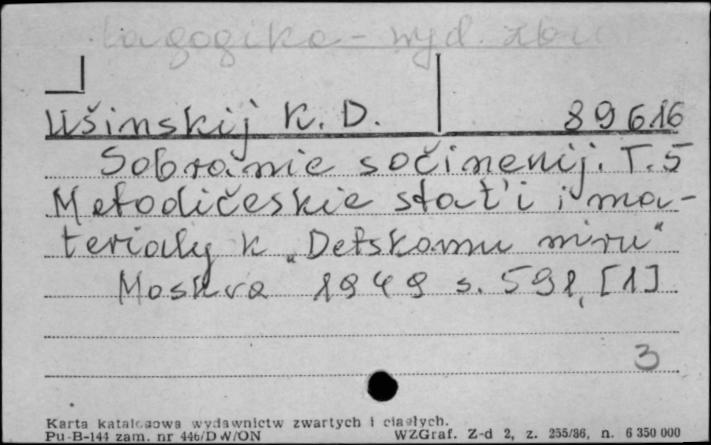 Pagogika - wyd. zbior
Ušinskij K. D. 89616
Sobranie sočinenij. T. 5
Metodičeskie stat'i i ma-
terialy k „Detskomu miru"
Moskva 1949 s. 591, [1]
3
Karta katalogowa wydawnictw zwartych i ciągłych.
Pu-B-144 zam. nr 446/DW/ON WZGraf. Z-d 2, z. 255/86, n. 6 350 000